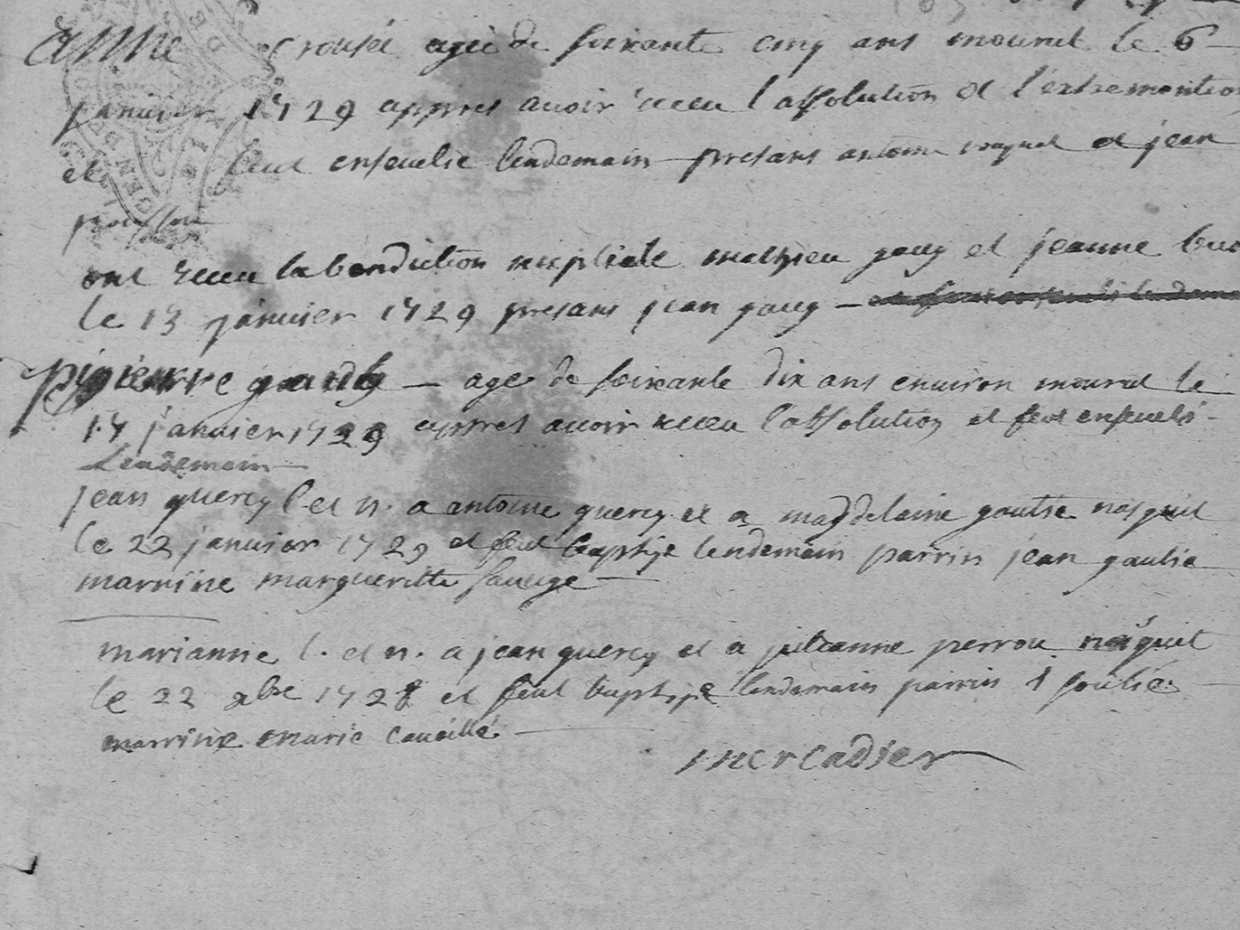 anne crousée agée de soixante cinq ans mourut le 6
janvier 1729 appres avoir receu l'assolution et l'extremontion
et feut ensevelie lendemain presans antoine et jean
ont receu la bendiction nuptiale mathieu gauy et jeanne
le 13 janvier 1729 presans jean gauy
pierre gauy age de soixante dix ans environ mourut le
14 janvier 1729 appres avoir receu l'assolution et feut enseveli
lendemain
jean quercy l. et n. a antoine quercy et a magdelaine gautie nasquit
le 22 janvier 1729 et feut baptise lendemain parrin jean gautie
marrine margueritte sauuge
marianne l. et n. a jean quercy et a julianne perrou nasquit
le 22 xbre 1728 et feut baptisée lendemain parrin j soulié
marrine marie couaillé
mercadier